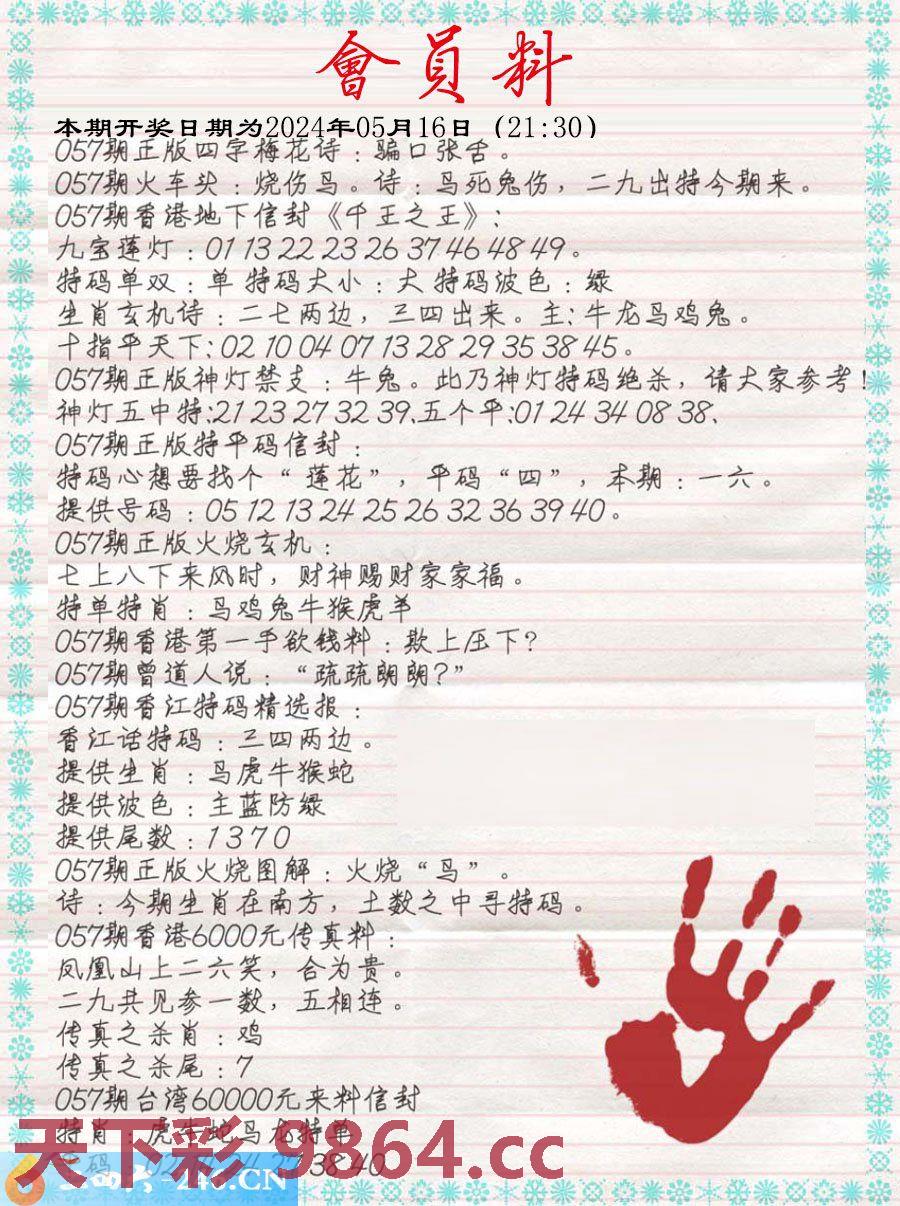 會員料
本期开奖日期为2024年05月16日（21:30）
057期正版四字梅花诗：骗口张舌。
057期火车头：烧伤鸟。诗：鸟死兔伤，二九出特今期来。
057期香港地下信封《千王之王》：
九宝莲灯：01 13 22 23 26 37 46 48 49。
特码单双：单 特码大小：大 特码波色：绿
生肖玄机诗：二七两边，三四出来。主：牛龙鸟鸡兔。
十指平天下：02 10 04 07 13 28 29 35 38 45。
057期正版神灯禁支：牛兔。此乃神灯特码绝杀，请大家参考！
神灯五中特：21 23 27 32 39.五个平：01 24 34 08 38.
057期正版特平码信封：
特码心想要找个“莲花”，平码“四”，本期：一六。
提供号码：05 12 13 24 25 26 32 36 39 40。
057期正版火烧玄机：
七上八下来风时，财神赐财家家福。
特单特肖：鸟鸡兔牛猴虎羊
057期香港第一手欲钱料：欺上压下？
057期曾道人说：“疏疏朗朗？”
057期香江特码精选报：
香江话特码：三四两边。
提供生肖：鸟虎牛猴蛇
提供波色：主蓝防绿
提供尾数：1 3 7 0
057期正版火烧图解：火烧“鸟”。
诗：今期生肖在南方，土数之中寻特码。
057期香港6000元传真料：
凤凰山上二六笑，合为贵。
二九共见参一数，五相连。
传真之杀肖：鸡
传真之杀尾：7
057期台湾60000元来料信封
特肖：虎牛蛇鸟龙特单
38 40
天下彩 9864.cc
246.CN